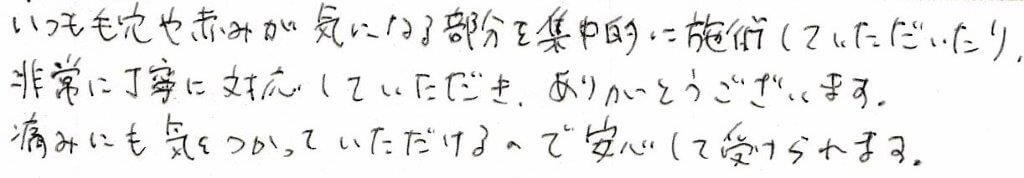 いつも毛穴や赤みが気になる部分を集中的に施術していただいたり、
非常に丁寧に対応していただき、ありがとうございます。
痛みにも気をつかっていただけるので安心して受けられます。